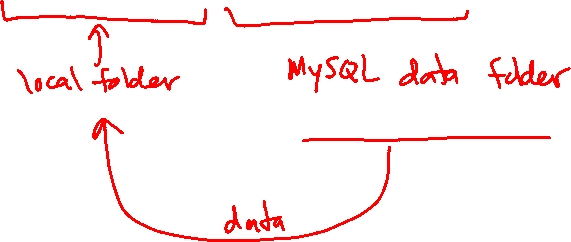 local folder
MySQL data folder
data